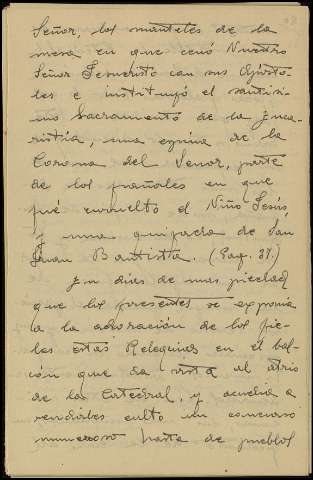 Señor, los manteles de la
mesa en que cenó Nuestro
Señor Jesucristo con sus Apósto-
les e instituyó el santísi-
mo Sacramento de la Euca-
ristía, una espina de la
Corona del Señor, parte
de los pañales en que
fué envuelto el Niño Jesús,
y una quijada de San
Juan Bautista. (Pag. 37.)
En días de mas piedad
que los presentes se exponia
a la adoración de los fie-
les estas Reliquias en el bal-
cón que da vista al atrio
de la Catedral, y acudia a
rendirles culto un concurso
numeroso hasta de pueblos